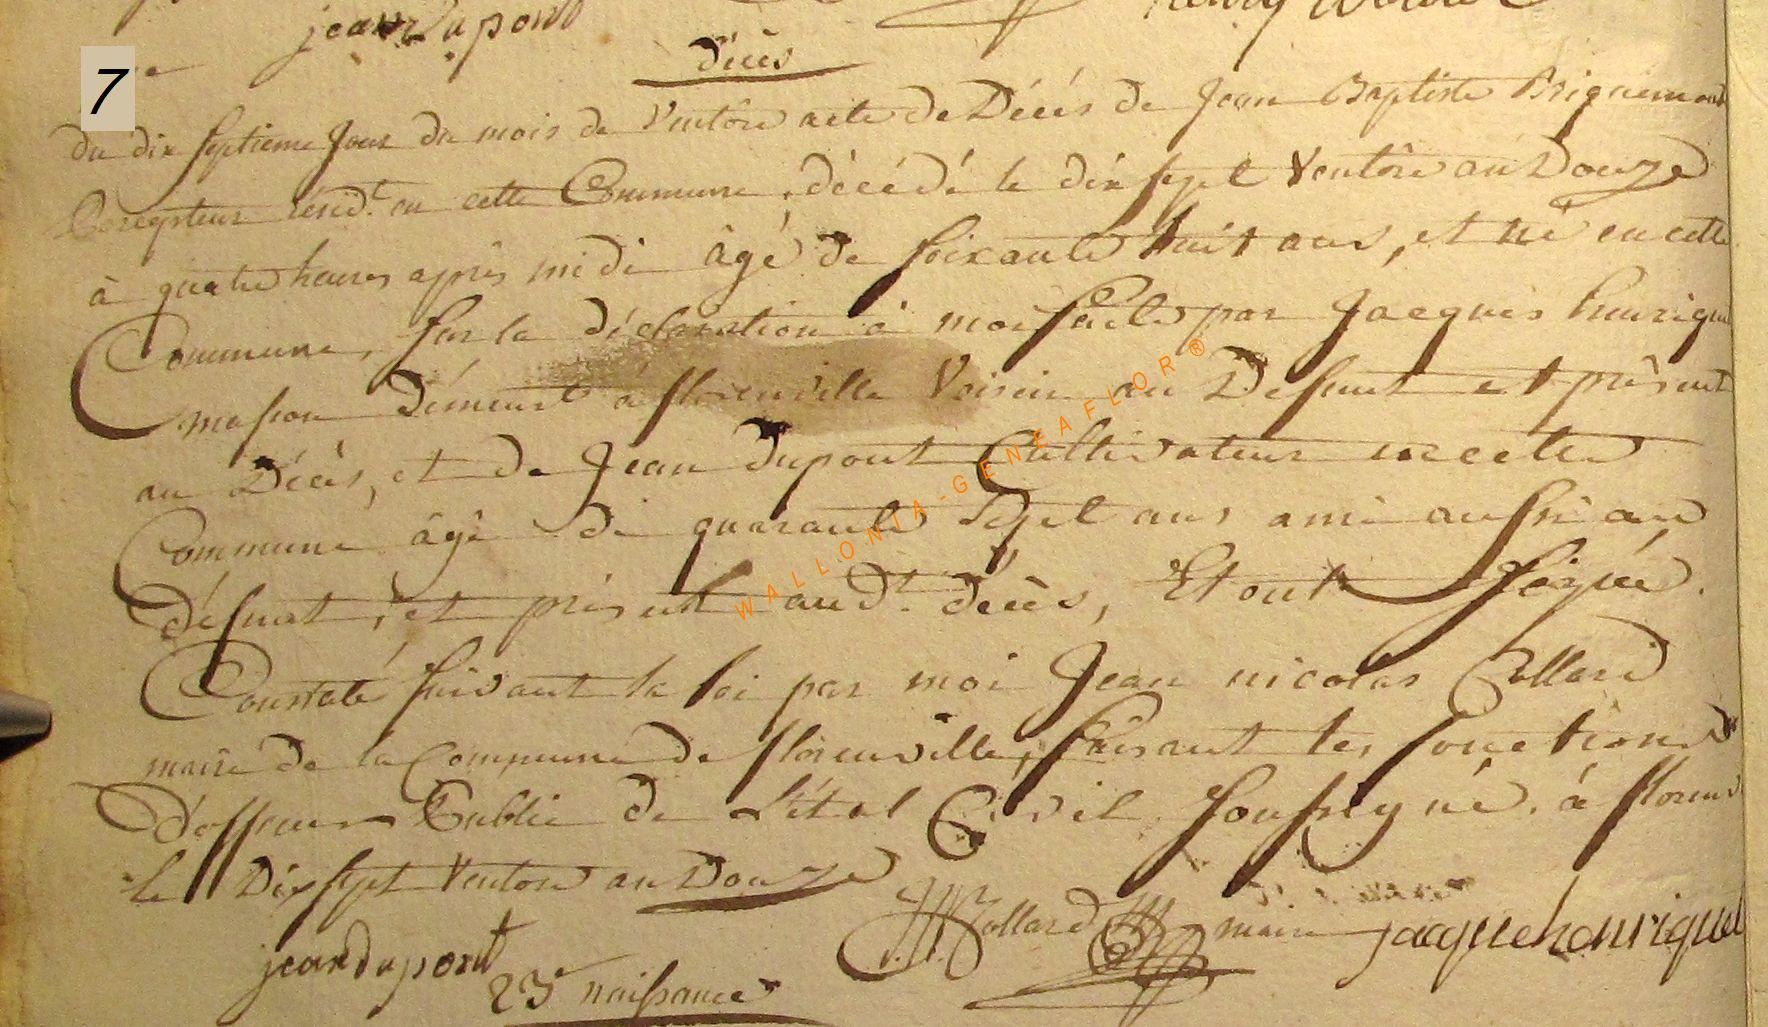 jean dupont
7
décès
du dix septieme jour du mois de Ventôse acte de Décès de Jean Baptiste Briquemont
Percepteur resid.t en cette Commune, décédé le dix sept Ventôse an Douze
à quatre heures après midi âgé de soixante huit ans, et né en cette
Commune, sur la déclaration à moi faite par Jacques henrique
masson démeurt à florenville Voisin au Defunt et présent
au Décès, et de Jean dupont Cultivateur en cette
Commune âgé de quarante sept ans ami aussi au
défunt, et présent aud.t décès, Et ont signé.
Constaté suivant la loi par moi Jean nicolas Collard
maire de la Commune de florenville, faisant les fonctions
d'officier Public de L'état Civil soussigné. à florenv
le Dix sept Ventose an Douze
JN Collard maire jacque henriquet
jean dupont
23e naissance
WALLONIA-GENEAFLOR®